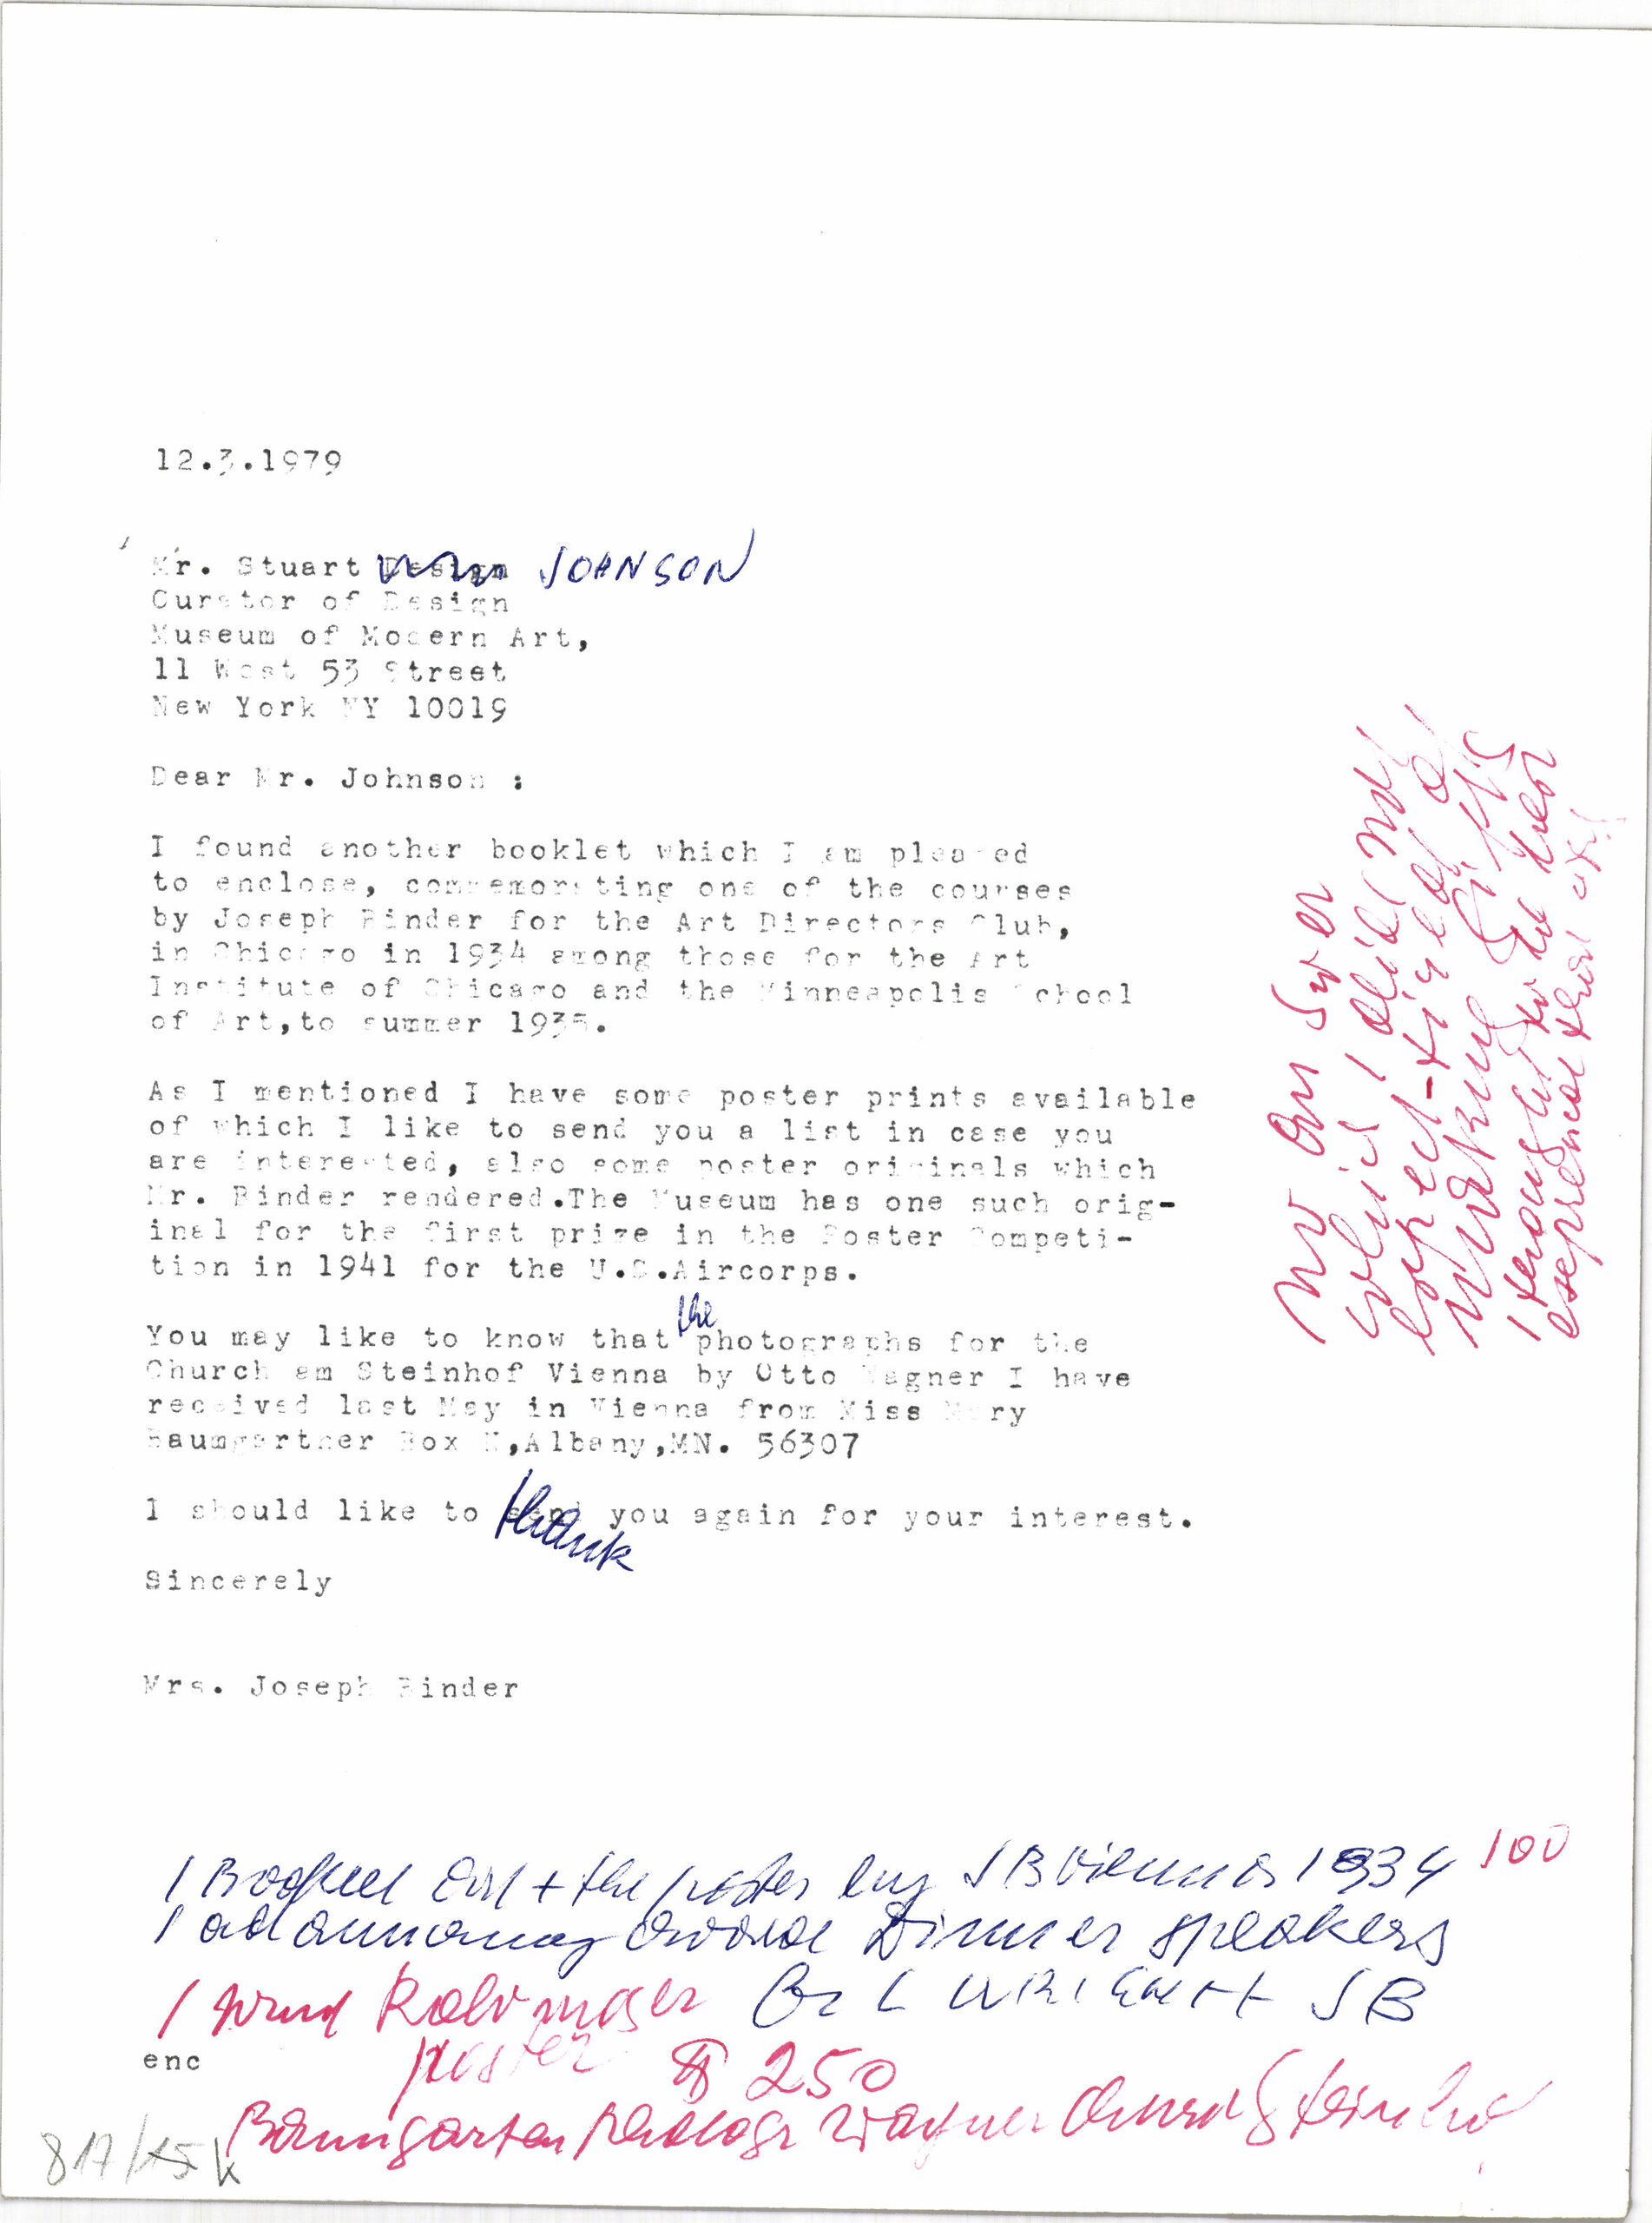 12.3.1979
Mr. Stuart Design JOHNSON
Curator of Design
Museum of Modern Art,
11 West 53 Street
New York NY 10019
Dear Mr. Johnson :
I found another booklet which I am pleased
to enclose, commemorating one of the courses
by Joseph Binder for the Art Directors Club,
in Chicago in 1934 among those for the Art
Institute of Chicago and the Minneapolis School
of Art,to summer 1935.
As I mentioned I have some poster prints available
of which I like to send you a list in case you
are interested, also some poster originals which
Mr. Binder rendered.The Museum has one such orig-
inal for the first prize in the Poster Competi-
tion in 1941 for the U.S.Aircorps.
You may like to know that the photographs for the
Church am Steinhof Vienna by Otto Wagner I have
received last May in Vienna from Miss Mary
Baumgartner Box H,Albany,MN. 56307
I should like to send thank you again for your interest.
Sincerely
Mrs. Joseph Binder
1 Booklet + the poster by JB Vienna 1934 100
1 ad Dinner speakers
1 L WRIGHT + JB
poster $ 250
enc
Baumgarten Wagner Church Steinhof
817/15 k
no answer
which I did not
expect
making gifts
I thought